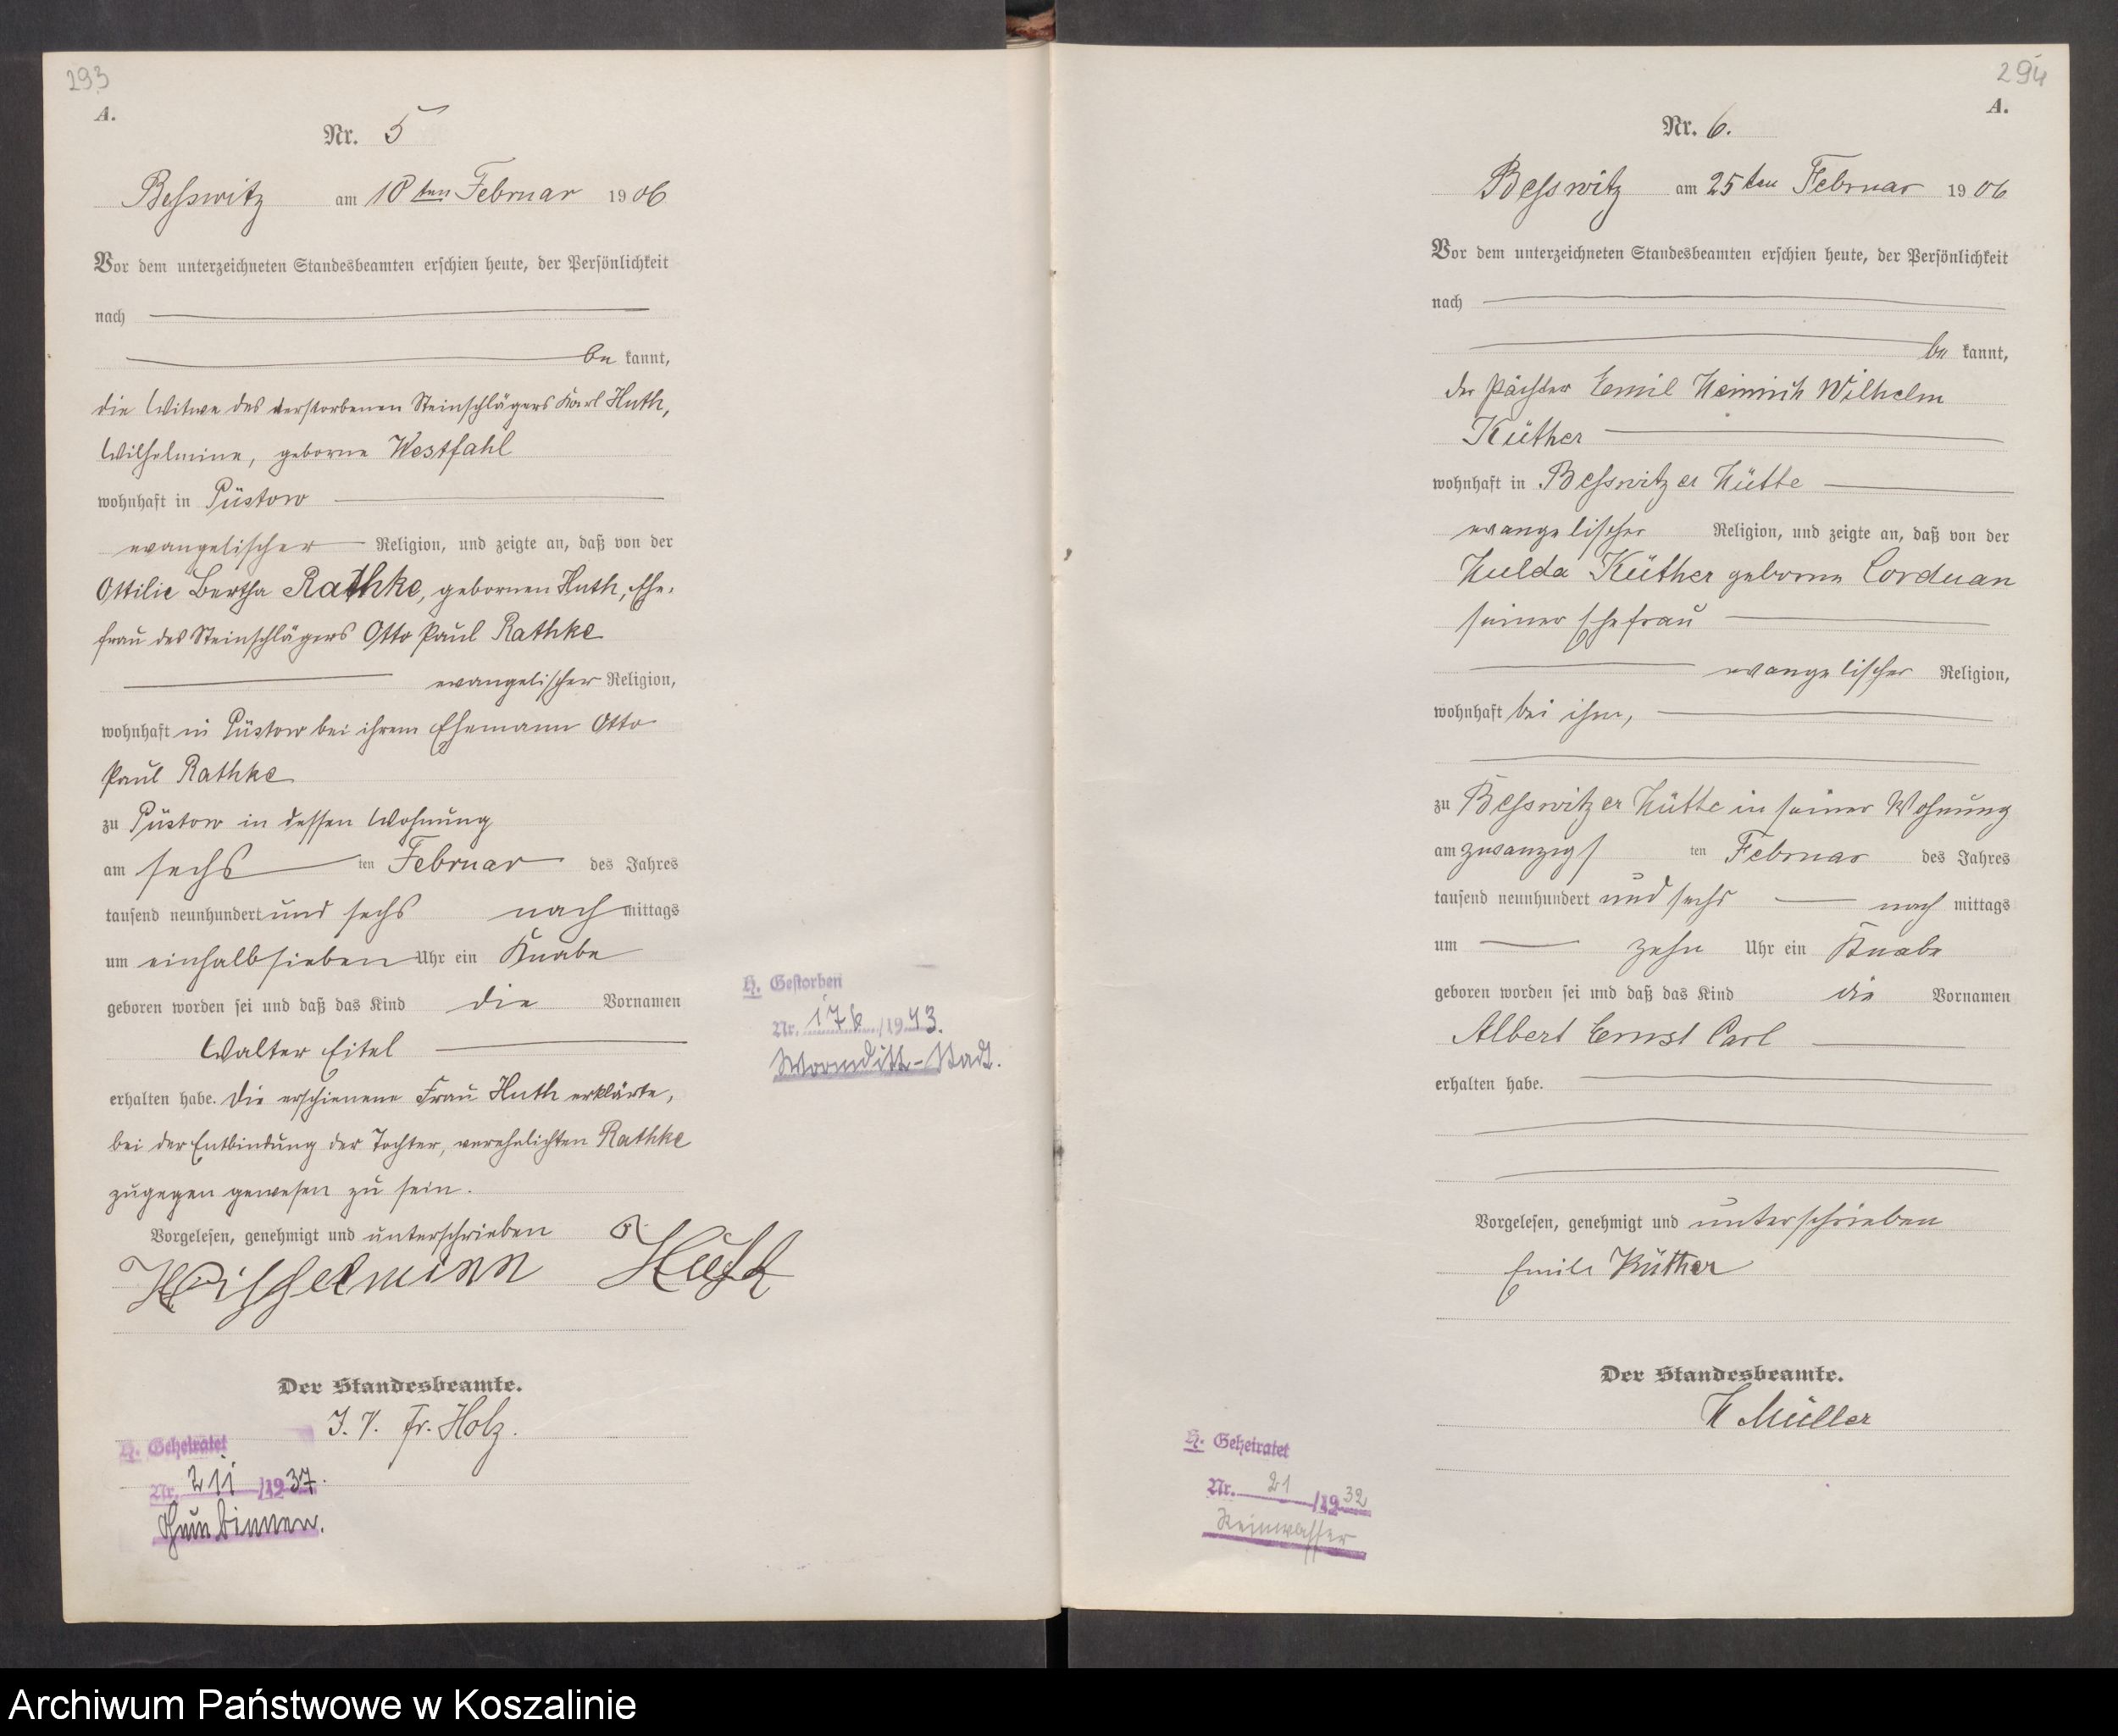 293
A.
Nr. 5
Besswitz am 10ten Februar 1906
Vor dem unterzeichneten Standesbeamten erschien heute, der Persönlichkeit
nach
be kannt,
die Witwe des verstorbenen Steinschlägers Karl Huth,
Wilhelmine, geborne Westfahl
wohnhaft in Püstow
evangelischer Religion, und zeigte an, daß von der
Ottilie Bertha Rathke, gebornen Huth, Ehe-
frau des Steinschlägers Otto Paul Rathke
evangelischer Religion,
wohnhaft in Püstow bei ihrem Ehemann Otto
Paul Rathke
zu Püstow in dessen Wohnung
am sechs ten Februar des Jahres
tausend neunhundert und sechs nach mittags
um einhalbsieben Uhr ein Knabe
geboren worden sei und daß das Kind die Vornamen
Walter Eitel
erhalten habe. Die erschienene Frau Huth erklärte,
bei der Entbindung der Tochter, verehelichten Rathke
zugegen gewesen zu sein.
Vorgelesen, genehmigt und unterschrieben
Huth
Der Standesbeamte.
I. V. Fr. Holz.
H. Geheiratet
Nr. 211 /1937.
Gumbinnen.
H. Gestorben
Nr. 176 /1943.
Wormditt-Stadt.
294
A.
Nr. 6.
Besswitz am 25ten Februar 1906
Vor dem unterzeichneten Standesbeamten erschien heute, der Persönlichkeit
nach
be kannt,
der Pächter Emil Heinrich Wilhelm
Küther
wohnhaft in Besswitzer Hütte
evangelischer Religion, und zeigte an, daß von der
Hulda Küther geborne Corduan
seiner Ehefrau
evangelischer Religion,
wohnhaft bei ihm,
zu Besswitzer Hütte in seiner Wohnung
am zwanzigs ten Februar des Jahres
tausend neunhundert und sechs nach mittags
um zehn Uhr ein Knabe
geboren worden sei und daß das Kind die Vornamen
Albert Ernst Carl
erhalten habe.
Vorgelesen, genehmigt und unterschrieben
Emil Küther
Der Standesbeamte.
H Müller
H. Geheiratet
Nr. 21 /1932
Reinwasser
Archiwum Państwowe w Koszalinie